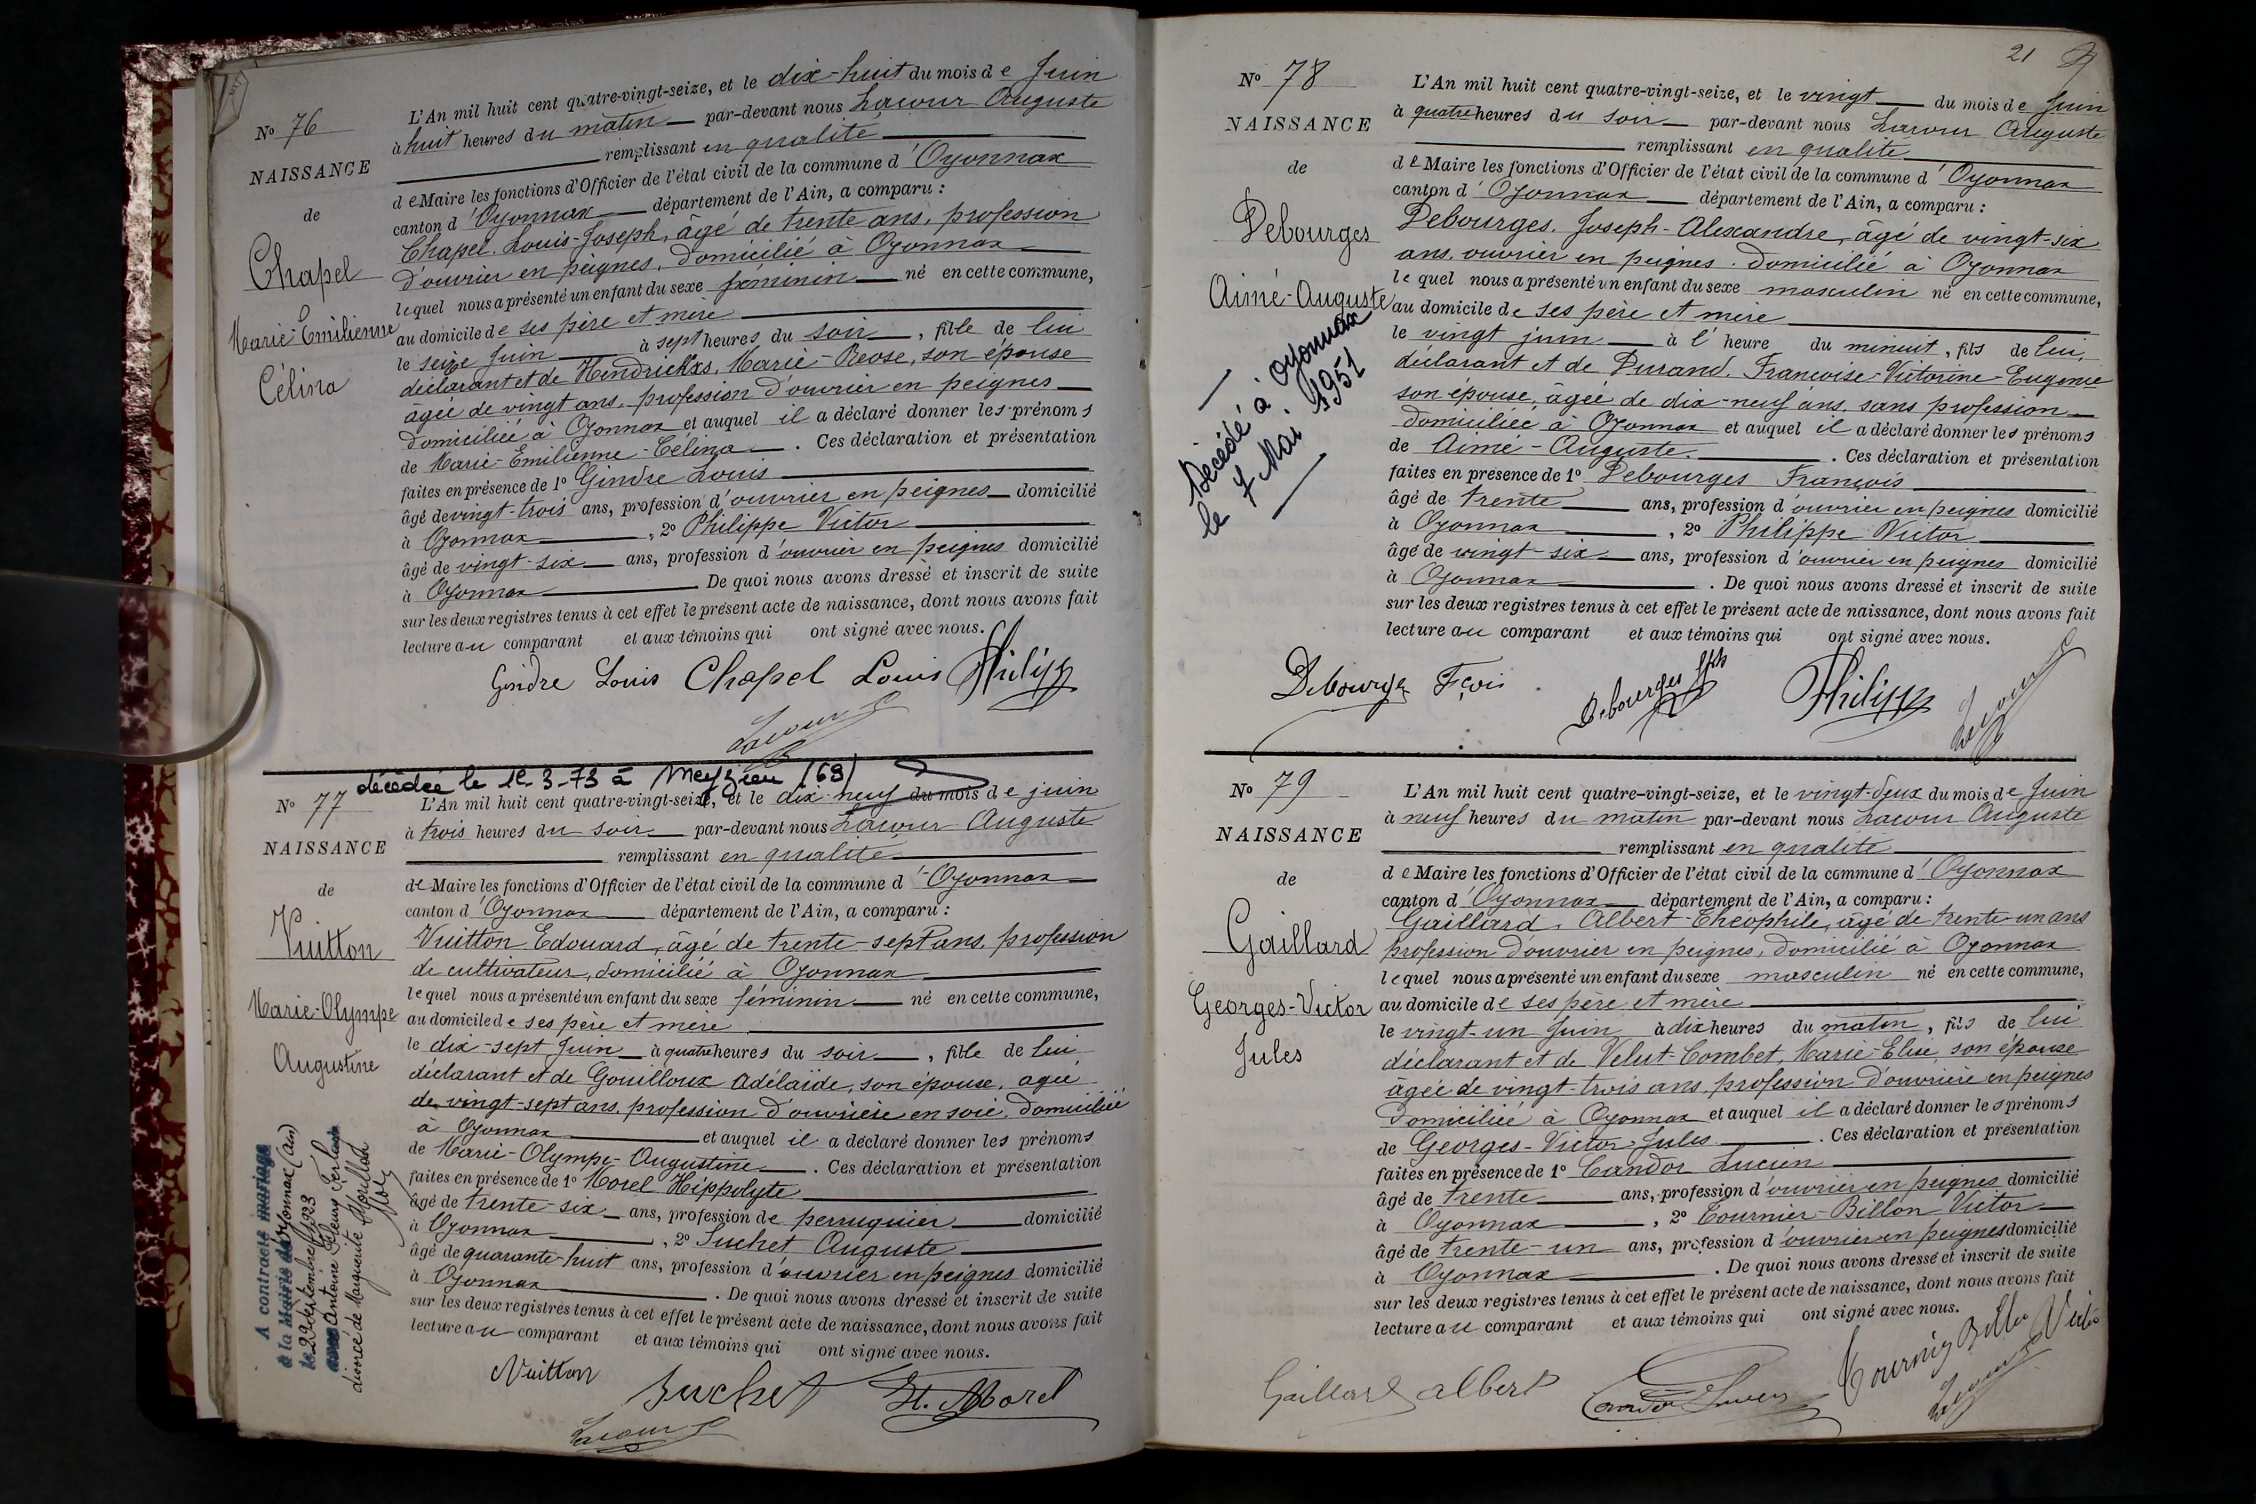 N° 76
NAISSANCE
de
Chapel
Marie-Emilienne
Célina
L'An mil huit cent quatre-vingt-seize, et le dix-huit du mois de Juin
à huit heures du matin par-devant nous Lacour Auguste
remplissant en qualité
de Maire les fonctions d'Officier de l'état civil de la commune d'Oyonnax
canton d'Oyonnax département de l'Ain, a comparu :
Chapel. Louis-Joseph, âgé de trente ans, profession
d'ouvrier en peignes, domicilié à Oyonnax
lequel nous a présenté un enfant du sexe féminin né en cette commune,
au domicile de ses père et mère
le seize Juin à sept heures du soir, fille de lui
déclarant et de Hendrickxs, Marie-Rose, son épouse
âgée de vingt ans, profession d'ouvrier en peignes
domiciliée à Oyonnax et auquel il a déclaré donner les prénoms
de Marie-Emilienne-Célina. Ces déclaration et présentation
faites en présence de 1° Gindre Louis
âgé de vingt-trois ans, profession d'ouvrier en peignes domicilié
à Oyonnax, 2° Philippe Victor
âgé de vingt-six ans, profession d'ouvrier en peignes domicilié
à Oyonnax De quoi nous avons dressé et inscrit de suite
sur les deux registres tenus à cet effet le présent acte de naissance, dont nous avons fait
lecture au comparant et aux témoins qui ont signé avec nous.
Gindre Louis Chapel Louis Philipp
Lacour
décédée le 12-3-73 à Meyzieu (69)
N° 77
NAISSANCE
de
Vuitton
Marie-Olympe
Augustine
A contracté mariage
à la Mairie de Oyonnax (Ain)
le 22 décembre 1923
avec Antoine Fleury
divorcé de Marguerite
L'An mil huit cent quatre-vingt-seize, et le dix-neuf du mois de juin
à trois heures du soir par-devant nous Lacour Auguste
remplissant en qualité
de Maire les fonctions d'Officier de l'état civil de la commune d'Oyonnax
canton d'Oyonnax département de l'Ain, a comparu :
Vuitton Edouard, âgé de trente-sept ans, profession
de cultivateur, domicilié à Oyonnax
lequel nous a présenté un enfant du sexe féminin né en cette commune,
au domicile de ses père et mère
le dix-sept Juin à quatre heures du soir, fille de lui
déclarant et de Gouilloux Adélaïde, son épouse, agée
de vingt-sept ans, profession d'ouvrière en soie, domiciliée
à Oyonnax et auquel il a déclaré donner les prénoms
de Marie-Olympe-Augustine. Ces déclaration et présentation
faites en présence de 1° Morel Hippolyte
âgé de trente-six ans, profession de perruquier domicilié
à Oyonnax, 2° Suchet Auguste
âgé de quarante-huit ans, profession d'ouvrier en peignes domicilié
à Oyonnax. De quoi nous avons dressé et inscrit de suite
sur les deux registres tenus à cet effet le présent acte de naissance, dont nous avons fait
lecture au comparant et aux témoins qui ont signé avec nous.
Vuitton Suchet H. Morel
Lacour
21
N° 78
NAISSANCE
de
Debourges
Aimé-Auguste
Décédé à Oyonnax
le 7 Mai 1951
L'An mil huit cent quatre-vingt-seize, et le vingt du mois de Juin
à quatre heures du soir par-devant nous Lacour Auguste
remplissant en qualité
de Maire les fonctions d'Officier de l'état civil de la commune d'Oyonnax
canton d'Oyonnax département de l'Ain, a comparu :
Debourges. Joseph-Alexandre, âgé de vingt-six
ans, ouvrier en peignes. domicilié à Oyonnax
lequel nous a présenté un enfant du sexe masculin né en cette commune,
au domicile de ses père et mère
le vingt juin à l'heure du minuit, fils de lui,
déclarant et de Durand. Françoise-Victorine-Eugénie
son épouse, âgée de dix-neuf ans, sans profession
domiciliée à Oyonnax et auquel il a déclaré donner les prénoms
de Aimé-Auguste. Ces déclaration et présentation
faites en présence de 1° Debourges François
âgé de trente ans, profession d'ouvrier en peignes domicilié
à Oyonnax, 2° Philippe Victor
âgé de vingt-six ans, profession d'ouvrier en peignes domicilié
à Oyonnax. De quoi nous avons dressé et inscrit de suite
sur les deux registres tenus à cet effet le présent acte de naissance, dont nous avons fait
lecture au comparant et aux témoins qui ont signé avec nous.
Debourges Fçois Debourges Jph Philipp Lacour
N° 79
NAISSANCE
de
Gaillard
Georges-Victor
Jules
L'An mil huit cent quatre-vingt-seize, et le vingt-deux du mois de Juin
à neuf heures du matin par-devant nous Lacour Auguste
remplissant en qualité
de Maire les fonctions d'Officier de l'état civil de la commune d'Oyonnax
canton d'Oyonnax département de l'Ain, a comparu :
Gaillard, Albert-Théophile, âgé de trente-un ans
profession d'ouvrier en peignes, domicilié à Oyonnax
lequel nous a présenté un enfant du sexe masculin né en cette commune,
au domicile de ses père et mère
le vingt-un Juin à dix heures du matin, fils de lui
déclarant et de Velut-Combet, Marie-Elise, son épouse
agée de vingt-trois ans, profession d'ouvrière en peignes
domiciliée à Oyonnax et auquel il a déclaré donner les prénoms
de Georges-Victor-Jules. Ces déclaration et présentation
faites en présence de 1° Candor Lucien
âgé de trente ans, profession d'ouvrier en peignes domicilié
à Oyonnax, 2° Tournier-Billon Victor
âgé de trente-un ans, profession d'ouvrier en peignes domicilié
à Oyonnax. De quoi nous avons dressé et inscrit de suite
sur les deux registres tenus à cet effet le présent acte de naissance, dont nous avons fait
lecture au comparant et aux témoins qui ont signé avec nous.
Gaillard Albert Candor Lucien Tournier Billon Victor
Lacour